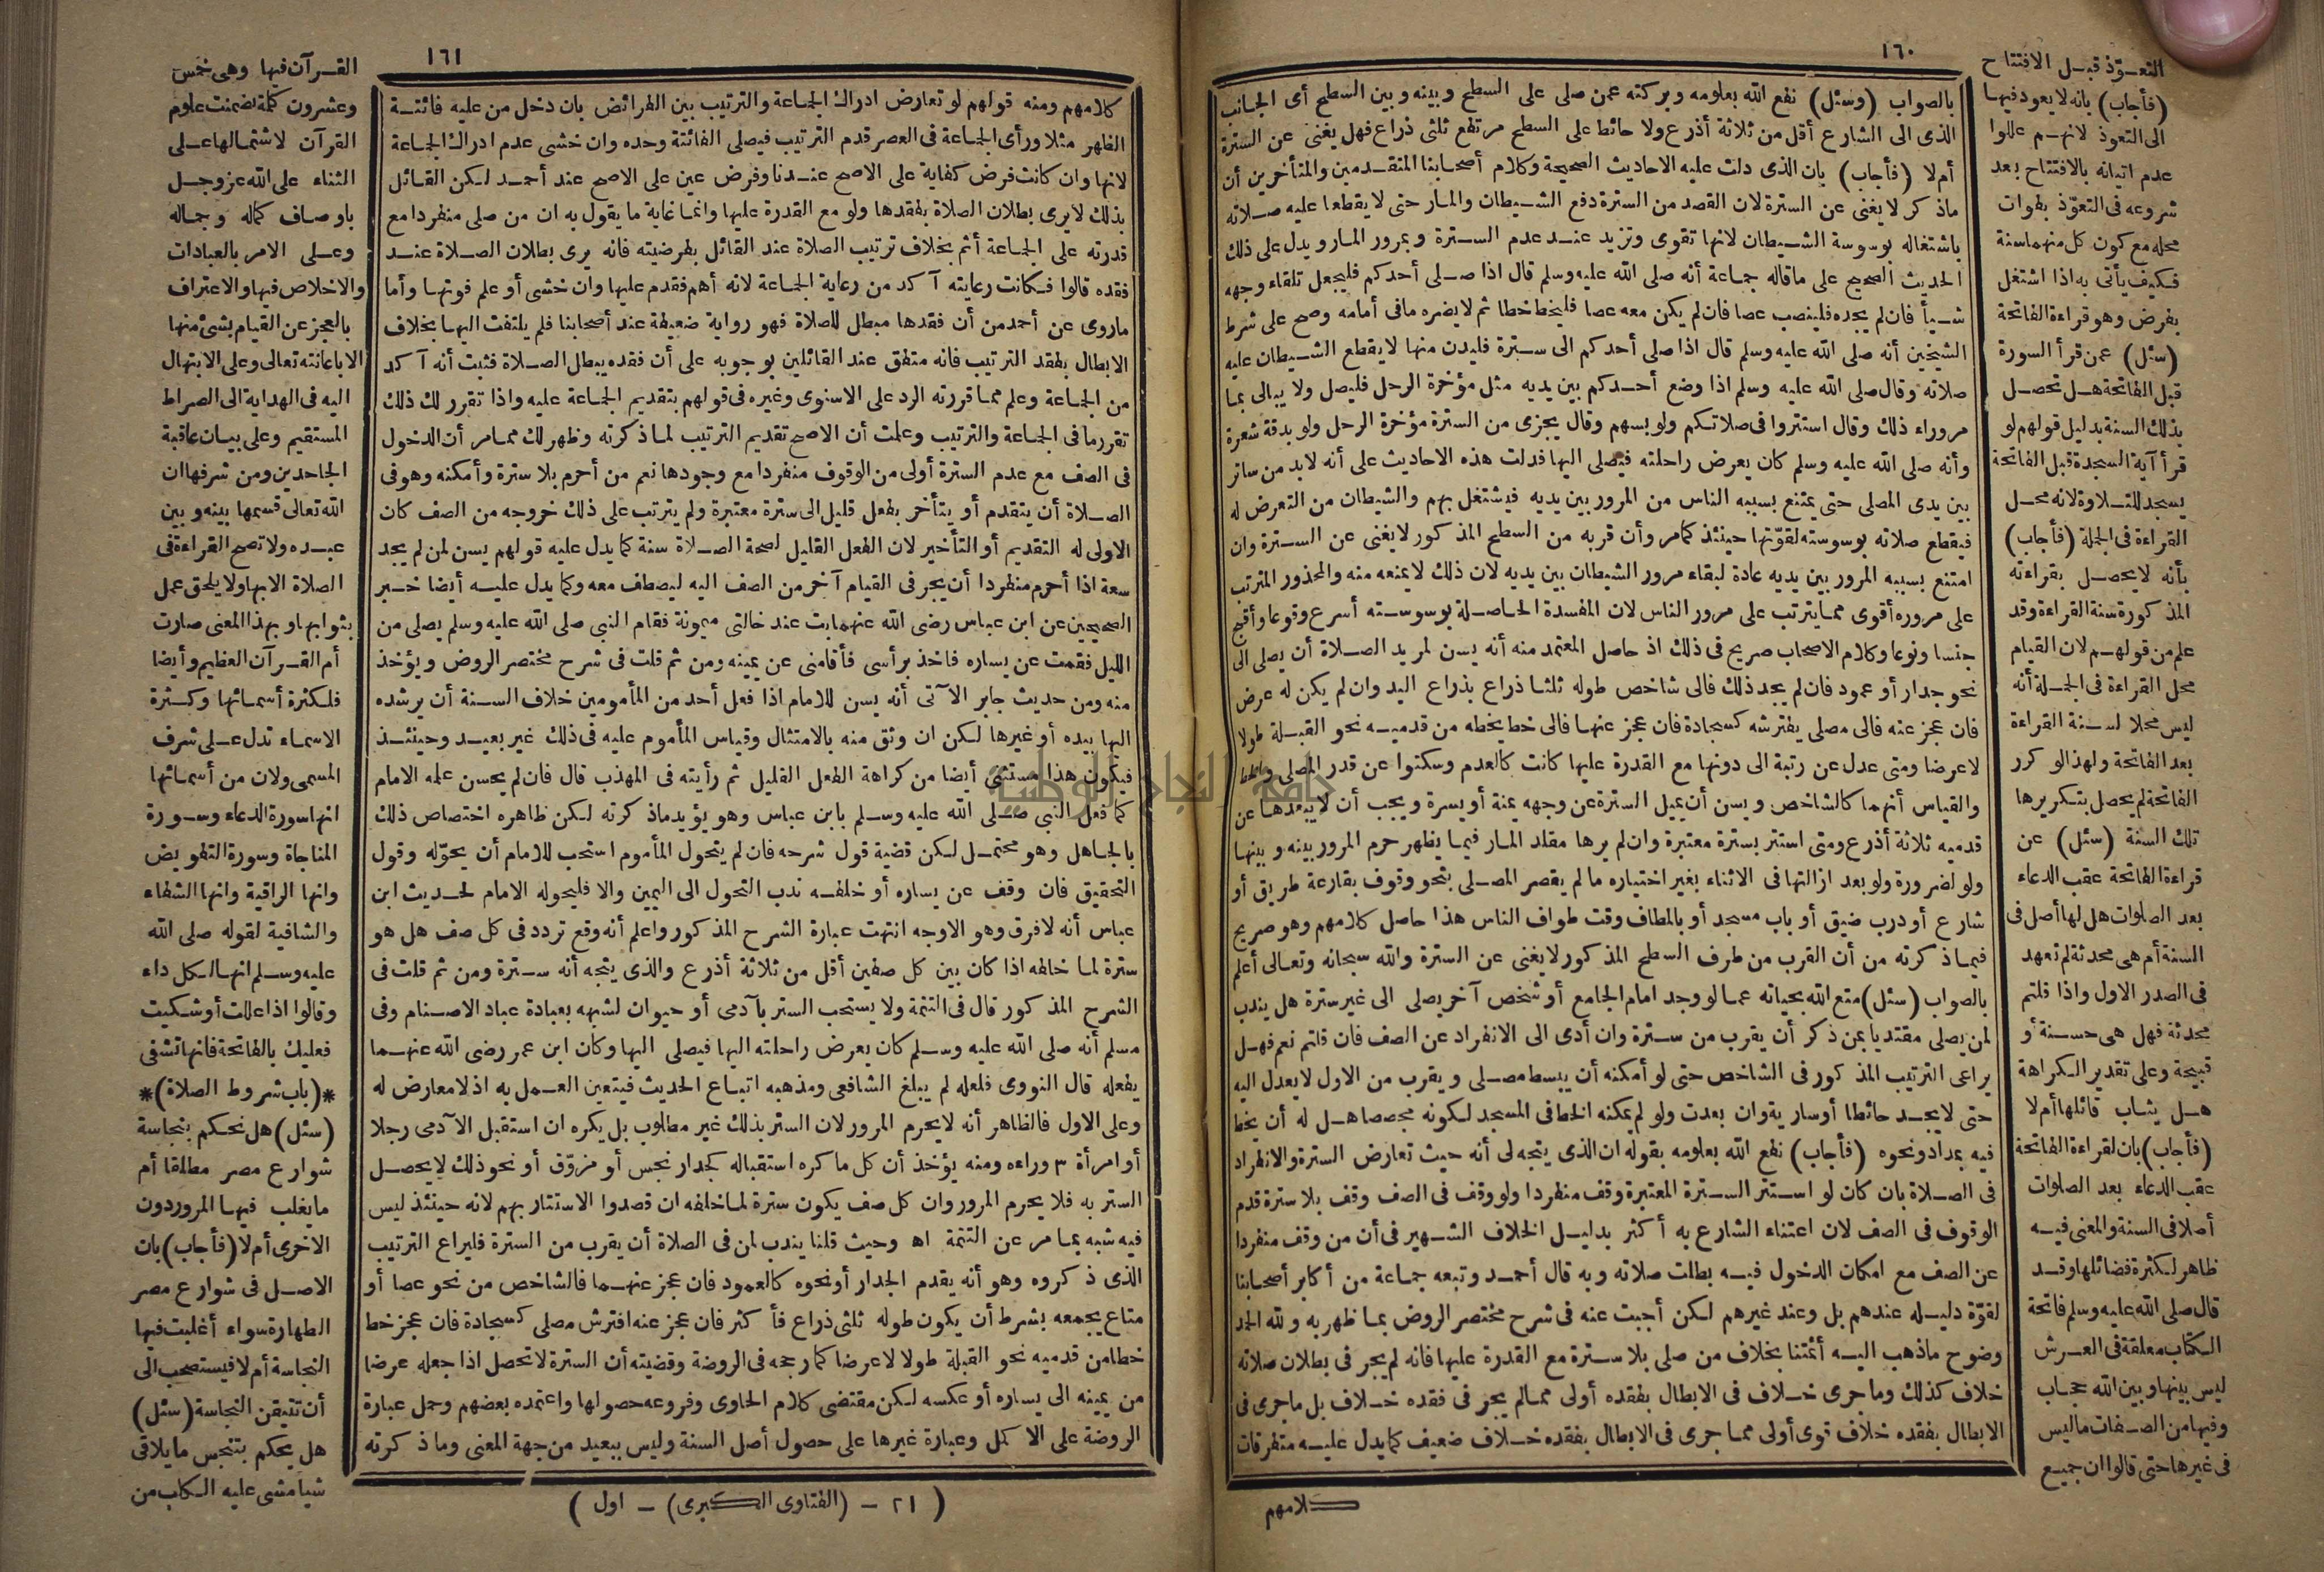 ١٦٠
بالصواب (وسئل) نفع الله بعلومه وبركته عمن صلى على السطح وبينه وبين السطح أى الجانب
الذى الى الشارع أقل من ثلاثة أذرع ولا حائط على السطح مرتفع ثلثى ذراع فهل يغنى عن السترة
أم لا (فأجاب) بان الذى دلت عليه الاحاديث الصحيحة وكلام أصحابنا المتقدمين والمتأخرين أن
ماذكر لا يغنى عن السترة لان القصد من السترة دفع الشيطان والمار حتى لا يقطعا عليه صلاته
باشتغاله بوسوسة الشيطان لانها تقوى وتزيد عند عدم السترة وبمرور المار ويدل على ذلك
الحديث الصحيح على ماقاله جماعة أنه صلى الله عليه وسلم قال اذا صلى أحدكم فليجعل تلقاء وجهه
شيأ فان لم يجده فلينصب عصا فان لم يكن معه عصا فليخط خطا ثم لا يضره مافى أمامه وصح على شرط
الشيخين أنه صلى الله عليه وسلم قال اذا صلى أحدكم الى سترة فليدن منها لا يقطع الشيطان عليه
صلاته وقال صلى الله عليه وسلم اذا وضع أحدكم بين يديه مثل مؤخرة الرحل فليصل ولا يبالى بما
مر وراء ذلك وقال استتروا فى صلاتكم ولو بسهم وقال يجزى من السترة مؤخرة الرحل ولو بدقة شعرة
وأنه صلى الله عليه وسلم كان يعرض راحلته فيصلى اليها فدلت هذه الاحاديث على أنه لابد من ساتر
بين يدى المصلى حتى يمتنع بسببه الناس من المرور بين يديه فيشتغل بهم والشيطان من التعرض له
فيقطع صلاته بوسوسته لقوّتها حينئذ كمامر وأن قربه من السطح المذكور لا يغنى عن السترة وان
امتنع بسببه المرور بين يديه عادة لبقاء مرور الشيطان بين يديه لان ذلك لا يمنعه منه والمحذور المترتب
على مروره أقوى مما يترتب على مرور الناس لان المفسدة الحاصلة بوسوسته أسرع وقوعا وأقبح
جنسا ونوعا وكلام الاصحاب صريح فى ذلك اذ حاصل المعتمد منه أنه يسن لمريد الصلاة أن يصلى الى
نحو جدار أو عمود فان لم يجد ذلك فالى شاخص طوله ثلثا ذراع بذراع اليد وان لم يكن له عرض
فان عجز عنه فالى مصلى يفترشه كسجادة فان عجز عنها فالى خط يخطه من قدميه نحو القبلة طولا
لا عرضا ومتى عدل عن رتبة الى دونها مع القدرة عليها كانت كالعدم وسكتوا عن قدر المصلى والخط
والقياس أنهما كالشاخص ويسن أن يميل السترة عن وجهه يمنة أو يسرة ويجب أن لا يبعدها عن
قدميه ثلاثة أذرع ومتى استتر بسترة معتبرة وان لم يرها مقلد المار فيما يظهر حرم المرور بينه وبينها
ولو لضرورة ولو بعد ازالتها فى الاثناء بغير اختياره مالم يقصر المصلى بنحو وقوف بقارعة طريق أو
شارع أو درب ضيق أو باب مسجد أو بالمطاف وقت طواف الناس هذا حاصل كلامهم وهو صريح
فيما ذكرته من أن القرب من طرف السطح المذكور لا يغنى عن السترة والله سبحانه وتعالى أعلم
بالصواب (سئل) متع الله بحياته عما لو وجد امام الجامع أو شخص آخر يصلى الى غير سترة هل يندب
لمن يصلى مقتديا بمن ذكر أن يقرب من سترة وان أدى الى الانفراد عن الصف فان قلتم نعم فهل
يراعى الترتيب المذكور فى الشاخص حتى لو أمكنه أن يبسط مصلى ويقرب من الاول لا يعدل اليه
حتى لا يجد حائطا أو سارية وان بعدت ولو لم يمكنه الخط فى المسجد لكونه مجصصا هل له أن يخط
فيه بمداد ونحوه (فأجاب) نفع الله بعلومه بقوله ان الذى يتجه لى أنه حيث تعارض السترة والانفراد
فى الصلاة بان كان لو استتر السترة المعتبرة وقف منفردا ولو وقف فى الصف وقف بلا سترة قدم
الوقوف فى الصف لان اعتناء الشارع به أكثر بدليل الخلاف الشهير فى أن من وقف منفردا
عن الصف مع امكان الدخول فيه بطلت صلاته وبه قال أحمد وتبعه جماعة من أكابر أصحابنا
لقوّة دليله عندهم بل وعند غيرهم لكن أجبت عنه فى شرح مختصر الروض بما ظهر به ولله الحمد
وضوح ماذهب اليه أئمتنا بخلاف من صلى بلا سترة مع القدرة عليها فانه لم يجر فى بطلان صلاته
خلاف كذلك وما جرى خلاف فى الابطال بفقده أولى ممالم يجر فى فقده خلاف بل ماجرى فى
الابطال بفقده خلاف قوى أولى مما جرى فى الابطال بفقده خلاف ضعيف كما يدل عليه متفرقات
كلامهم
التعوّذ قبل الافتتاح
(فأجاب) بانه لا يعود فيها
الى التعوذ لانهم عللوا
عدم اتيانه بالافتتاح بعد
شروعه فى التعوّذ بفوات
محله مع كون كل منهما سنة
فكيف يأتى به اذا اشتغل
بفرض وهو قراءة الفاتحة
(سئل) عمن قرأ السورة
قبل الفاتحة هل تحصل
بذلك السنة بدليل قولهم لو
قرأ آية السجدة قبل الفاتحة
يسجد للتلاوة لانه محل
القراءة فى الجملة (فأجاب)
بأنه لا يحصل بقراءته
المذكورة سنة القراءة وقد
علم من قولهم لان القيام
محل القراءة فى الجملة أنه
ليس محلا لسنة القراءة
بعد الفاتحة ولهذا لو كرر
الفاتحة لم يحصل بتكريرها
تلك السنة (سئل) عن
قراءة الفاتحة عقب الدعاء
بعد الصلوات هل لها أصل فى
السنة أم هى محدثة لم تعهد
فى الصدر الاول واذا قلتم
محدثة فهل هى حسنة أو
قبيحة وعلى تقدير الكراهة
هل يثاب قائلها أم لا
(فأجاب) بان لقراءة الفاتحة
عقب الدعاء بعد الصلوات
أصلا فى السنة والمعنى فيه
ظاهر لكثرة فضائلها وقد
قال صلى الله عليه وسلم فاتحة
الكتاب معلقة فى العرش
ليس بينها وبين الله حجاب
وفيها من الصفات ماليس
فى غيرها حتى قالوا ان جميع
١٦١
كلامهم ومنه قولهم لو تعارض ادراك الجماعة والترتيب بين الفرائض بان دخل من عليه فائتة
الظهر مثلا ورأى الجماعة فى العصر قدم الترتيب فيصلى الفائتة وحده وان خشى عدم ادراك الجماعة
لانها وان كانت فرض كفاية على الاصح عندنا وفرض عين على الاصح عند أحمد لكن القائل
بذلك لا يرى بطلان الصلاة بفقدها ولو مع القدرة عليها وانما غاية ما يقول به ان من صلى منفردا مع
قدرته على الجماعة أثم بخلاف ترتيب الصلاة عند القائل بفرضيته فانه يرى بطلان الصلاة عند
فقده قالوا فكانت رعايته آكد من رعاية الجماعة لانه أهم فقدم عليها وان خشى أو علم فوتها وأما
ماروى عن أحمد من أن فقدها مبطل للصلاة فهو رواية ضعيفة عند أصحابنا فلم يلتفت اليها بخلاف
الابطال بفقد الترتيب فانه متفق عند القائلين بوجوبه على أن فقده يبطل الصلاة فثبت أنه آكد
من الجماعة وعلم مما قررته الرد على الاسنوى وغيره فى قولهم بتقديم الجماعة عليه واذا تقرر لك ذلك
تقرر ما فى الجماعة والترتيب وعلمت أن الاصح تقديم الترتيب لما ذكرته وظهر لك مما مر أن الدخول
فى الصف مع عدم السترة أولى من الوقوف منفردا مع وجودها نعم من أحرم بلا سترة وأمكنه وهو فى
الصلاة أن يتقدم أو يتأخر بفعل قليل الى سترة معتبرة ولم يترتب على ذلك خروجه من الصف كان
الاولى له التقديم أو التأخير لان الفعل القليل لصحة الصلاة سنة كما يدل عليه قولهم يسن لمن لم يجد
سعة اذا أحرم منفردا أن يجر فى القيام آخر من الصف اليه ليصطف معه وكما يدل عليه أيضا خبر
الصحيحين عن ابن عباس رضى الله عنهما بت عند خالتى ميمونة فقام النبى صلى الله عليه وسلم يصلى من
الليل فقمت عن يساره فاخذ برأسى فأقامنى عن يمينه ومن ثم قلت فى شرح مختصر الروض ويؤخذ
منه ومن حديث جابر الآتى أنه يسن للامام اذا فعل أحد من المأمومين خلاف السنة أن يرشده
اليها بيده أو غيرها لكن ان وثق منه بالامتثال وقياس المأموم عليه فى ذلك غير بعيد وحينئذ
فيكون هذا مستثنى أيضا من كراهة الفعل القليل ثم رأيته فى المهذب قال فان لم يحسن علمه الامام
كما فعل النبى صلى الله عليه وسلم بابن عباس وهو يؤيد ماذكرته لكن ظاهره اختصاص ذلك
بالجاهل وهو محتمل لكن قضية قول شرحه فان لم يتحول المأموم استحب للامام أن يحوّله وقول
التحقيق فان وقف عن يساره أو خلفه ندب التحول الى اليمين والا فليحوله الامام لحديث ابن
عباس أنه لا فرق وهو الاوجه انتهت عبارة الشرح المذكور واعلم أنه وقع تردد فى كل صف هل هو
سترة لما خلفه اذا كان بين كل صفين أقل من ثلاثة أذرع والذى يتجه أنه سترة ومن ثم قلت فى
الشرح المذكور قال فى التتمة ولا يستحب الستر بآدمى أو حيوان لشبهه بعبادة عباد الاصنام وفى
مسلم أنه صلى الله عليه وسلم كان يعرض راحلته اليها فيصلى اليها وكان ابن عمر رضى الله عنهما
يفعله قال النووى فلعله لم يبلغ الشافعى ومذهبه اتباع الحديث فيتعين العمل به اذ لا معارض له
وعلى الاول فالظاهر أنه لا يحرم المرور لان الستر بذلك غير مطلوب بل يكره ان استقبل الآدمى رجلا
أو امرأة ٣ وراءه ومنه يؤخذ أن كل ما كره استقباله كجدار نجس أو مزوّق أو نحو ذلك لا يحصل
الستر به فلا يحرم المرور وان كل صف يكون سترة لما خلفه ان قصدوا الاستتار بهم لانه حينئذ ليس
فيه شبه بما مر عن التتمة اه وحيث قلنا يندب لمن فى الصلاة أن يقرب من السترة فليراع الترتيب
الذى ذكروه وهو أنه يقدم الجدار أو نحوه كالعمود فان عجز عنهما فالشاخص من نحو عصا أو
متاع يجمعه بشرط أن يكون طوله ثلثى ذراع فأكثر فان عجز عنه افترش مصلى كسجادة فان عجز خط
خطا من قدميه نحو القبلة طولا لا عرضا كما رجحه فى الروضة وقضيته أن السترة لا تحصل اذا جعله عرضا
من يمينه الى يساره أو عكسه لكن مقتضى كلام الحاوى وفروعه حصولها واعتمده بعضهم وحمل عبارة
الروضة على الاكمل وعبارة غيرها على حصول أصل السنة وليس ببعيد من جهة المعنى وما ذكرته
(٢١ – (الفتاوى الكبرى) – اول)
القرآن فيها وهى خمس
وعشرون كلمة تضمنت علوم
القرآن لاشتمالها على
الثناء على الله عز وجل
باوصاف كماله وجماله
وعلى الامر بالعبادات
والاخلاص فيها والاعتراف
بالعجز عن القيام بشئ منها
الا باعانته تعالى وعلى الابتهال
اليه فى الهداية الى الصراط
المستقيم وعلى بيان عاقبة
الجاحدين ومن شرفها ان
الله تعالى قسمها بينه وبين
عبده ولا تصح القراءة فى
الصلاة الا بها ولا يلحق عمل
بثوابها وبهذا المعنى صارت
أم القرآن العظيم وأيضا
فلكثرة أسمائها وكثرة
الاسماء تدل على شرف
المسمى ولان من أسمائها
انها سورة الدعاء وسورة
المناجاة وسورة التفويض
وانها الراقية وانها الشفاء
والشافية لقوله صلى الله
عليه وسلم انها لكل داء
وقالوا اذا عللت أو شكيت
فعليك بالفاتحة فانها تشفى
*(باب شروط الصلاة)*
(سئل) هل نحكم بنجاسة
شوارع مصر مطلقا أم
ما يغلب فيها المرور دون
الاخرى أم لا (فأجاب) بان
الاصل فى شوارع مصر
الطهارة سواء أغلبت فيها
النجاسة أم لا فيستصحب الى
أن تتيقن النجاسة (سئل)
هل يحكم بتنجس ما يلاقى
شيأ مشى عليه الكلب من
جامعة النجاح الوطنية